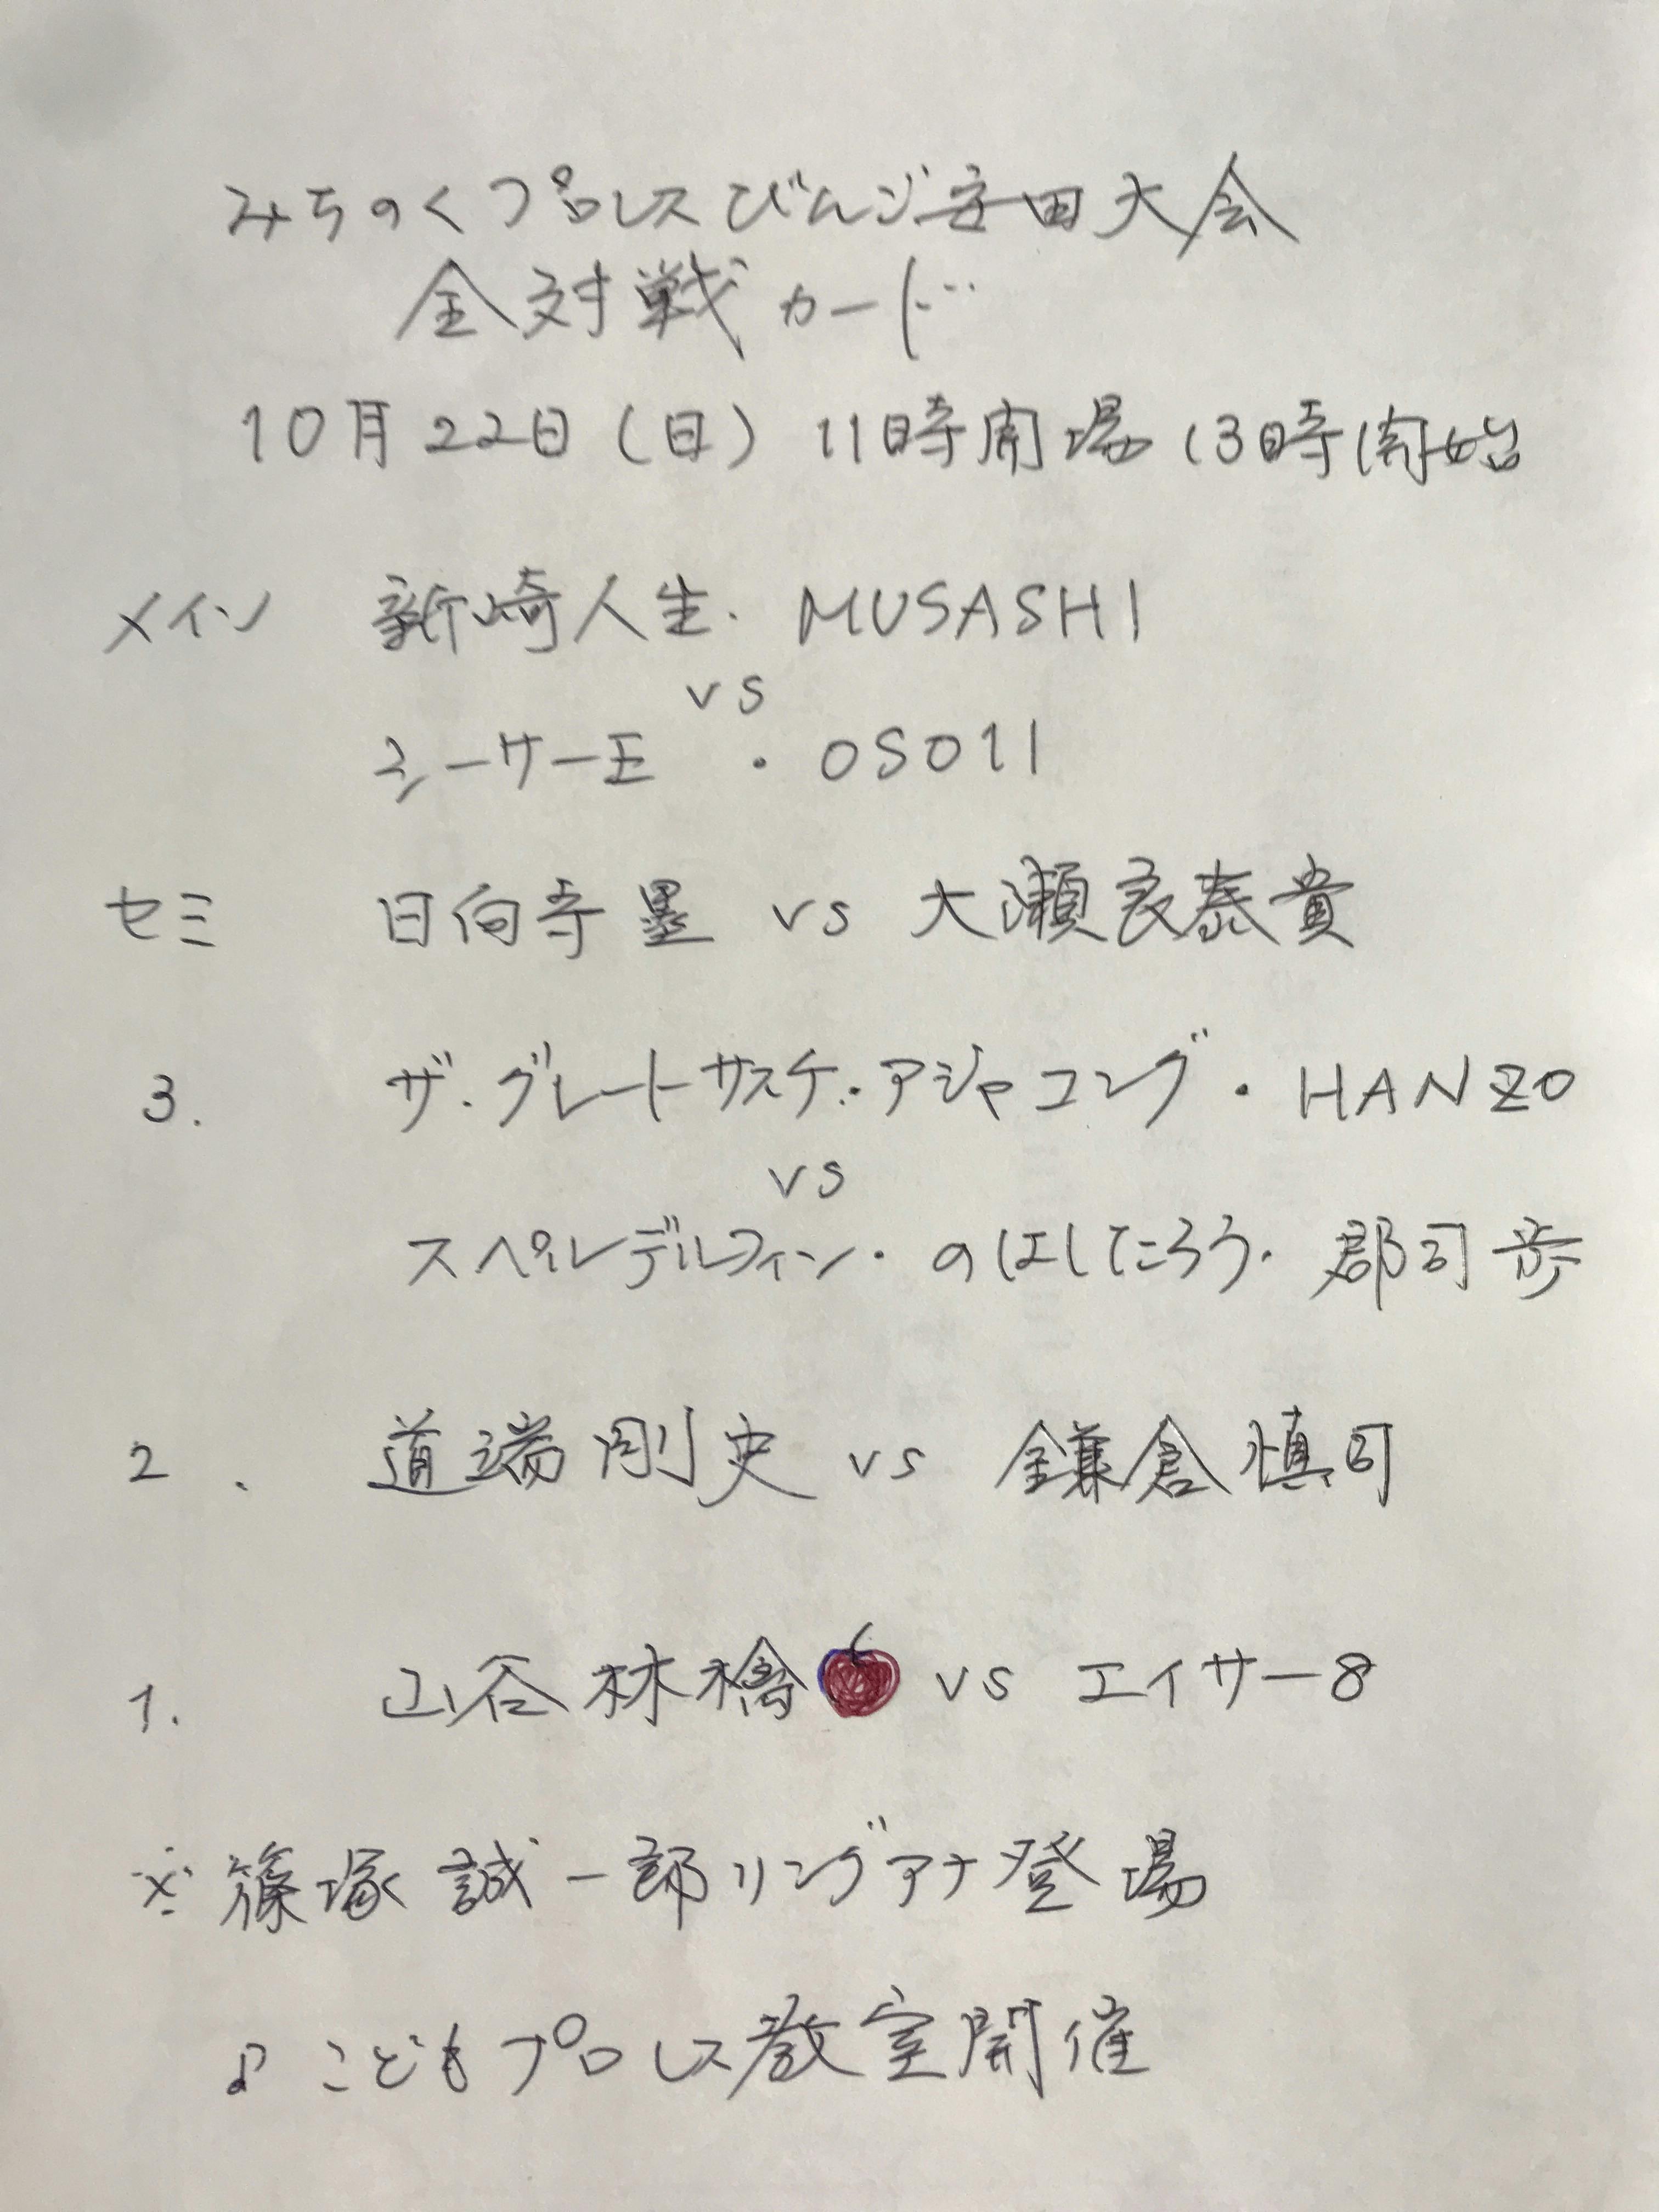 みちのくプロレスびんご安田大会
全対戦カード
10月22日(日) 11時開場 13時開始
メイン 新崎人生・MUSASHI
vs
シーサー王・OSO11
セミ 日向寺塁 vs 大瀬良泰貴
3. ザ・グレートサスケ・アジャコング・HANZO
vs
スペルデルフィン・のはしたろう・郡司歩
2. 道端剛史 vs 鎌倉慎司
1. 山谷林檎 vs エイサー8
※篠塚誠一郎リングアナ登場
♪こどもプロレス教室開催